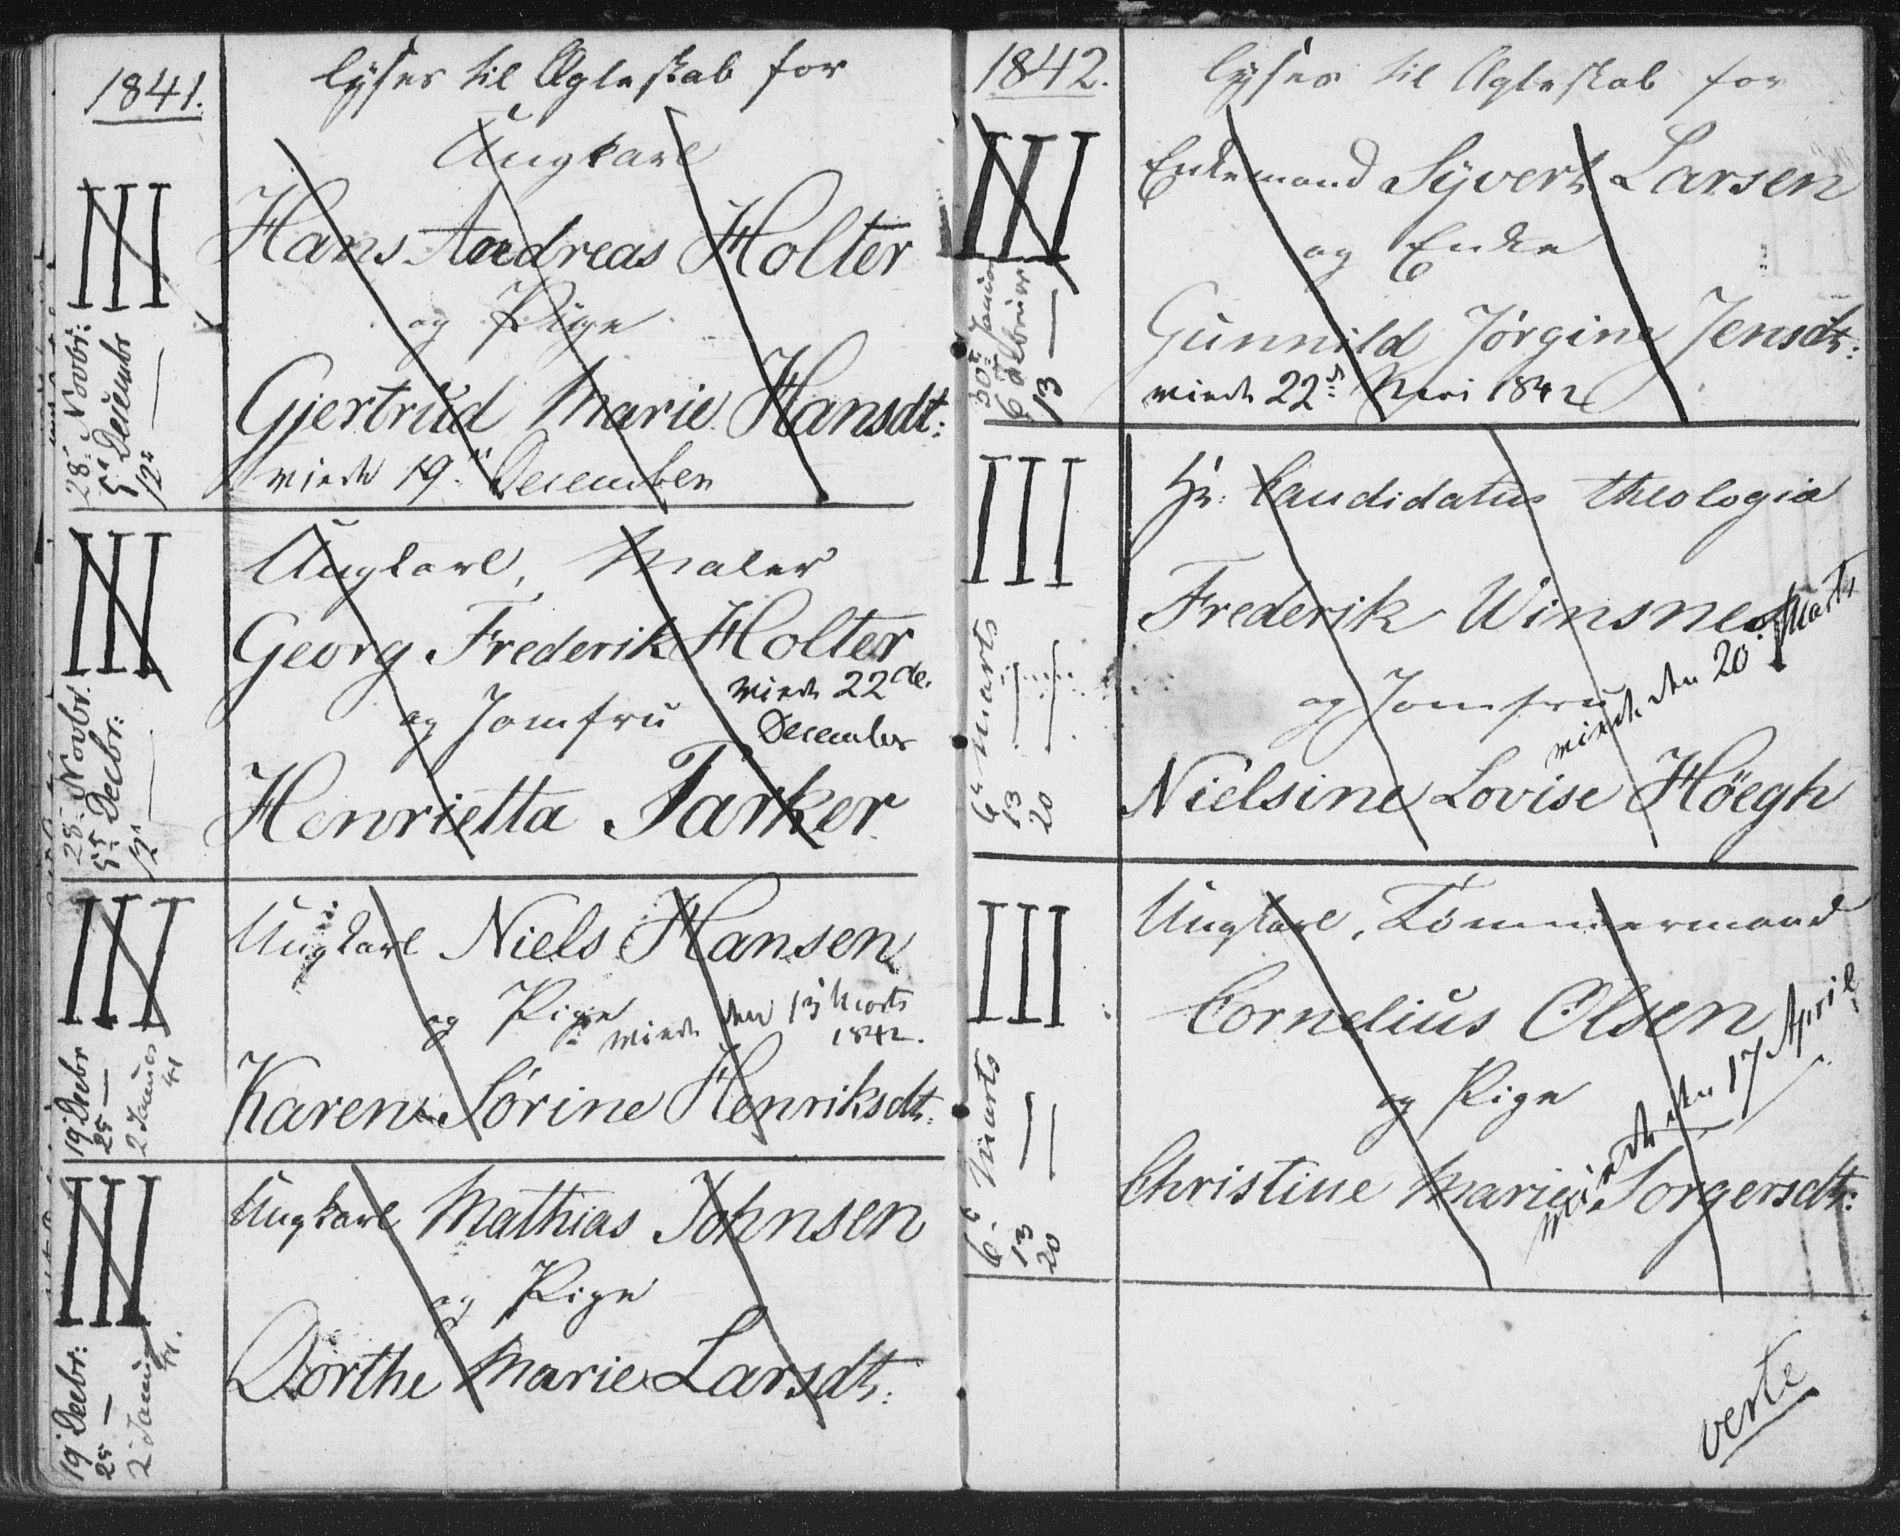 1841.
lyses til Ægteskab for
III
28 Novbr:
5te Decembr
12te —
Ungkarl
Hans Andreas Holter
og Pige
Gjertrud Marie Hansdt:
viede 19de December
III
28 Novbr.
5te Decbr:
12te —
Ungkarl, Maler
Georg Frederik Holter
og Jomfru
viede 22de.
December
Henrietta Parker
III
19 Decbr
25 —
2 Januar
Ungkarl Niels Hansen
og Pige
viede den 13de Marts
1842.
Karen Sørine Henriksdt:
III
19 Decbr:
25 —
2 Januar
Ungkarl Mathias Johnsen
og Pige
Dorthe Marie Larsdt:
1842.
lyses til Ægteskab for
III
30te Januar
6 Februar
13 —
Enkemand Syvert Larsen
og Enke
Gunnild Jørgine Jensdt:
viede 22de Mai 1842
III
6te Marts
13 —
20 —
Hr: Candidatus theologiæ
Frederik Winsnes
og Jomfru
viede den 20 Marts
Nielsine Lovise Höegh
III
6te Marts
13 —
20 —
Ungkarl, Tömmermand
Cornelius Olsen
og Pige
viede den 17 April
Christine Marie Torgersdt:
verte